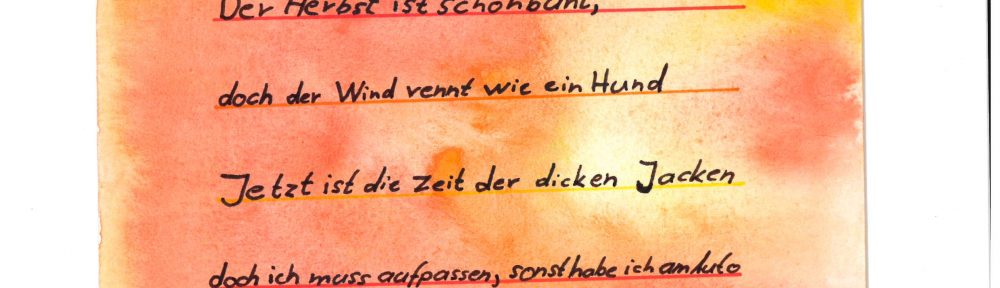 Der Herbst ist schön bunt,
doch der Wind rennt wie ein Hund
Jetzt ist die Zeit der dicken Jacken
doch ich muss aufpassen, sonst habe ich am Auto